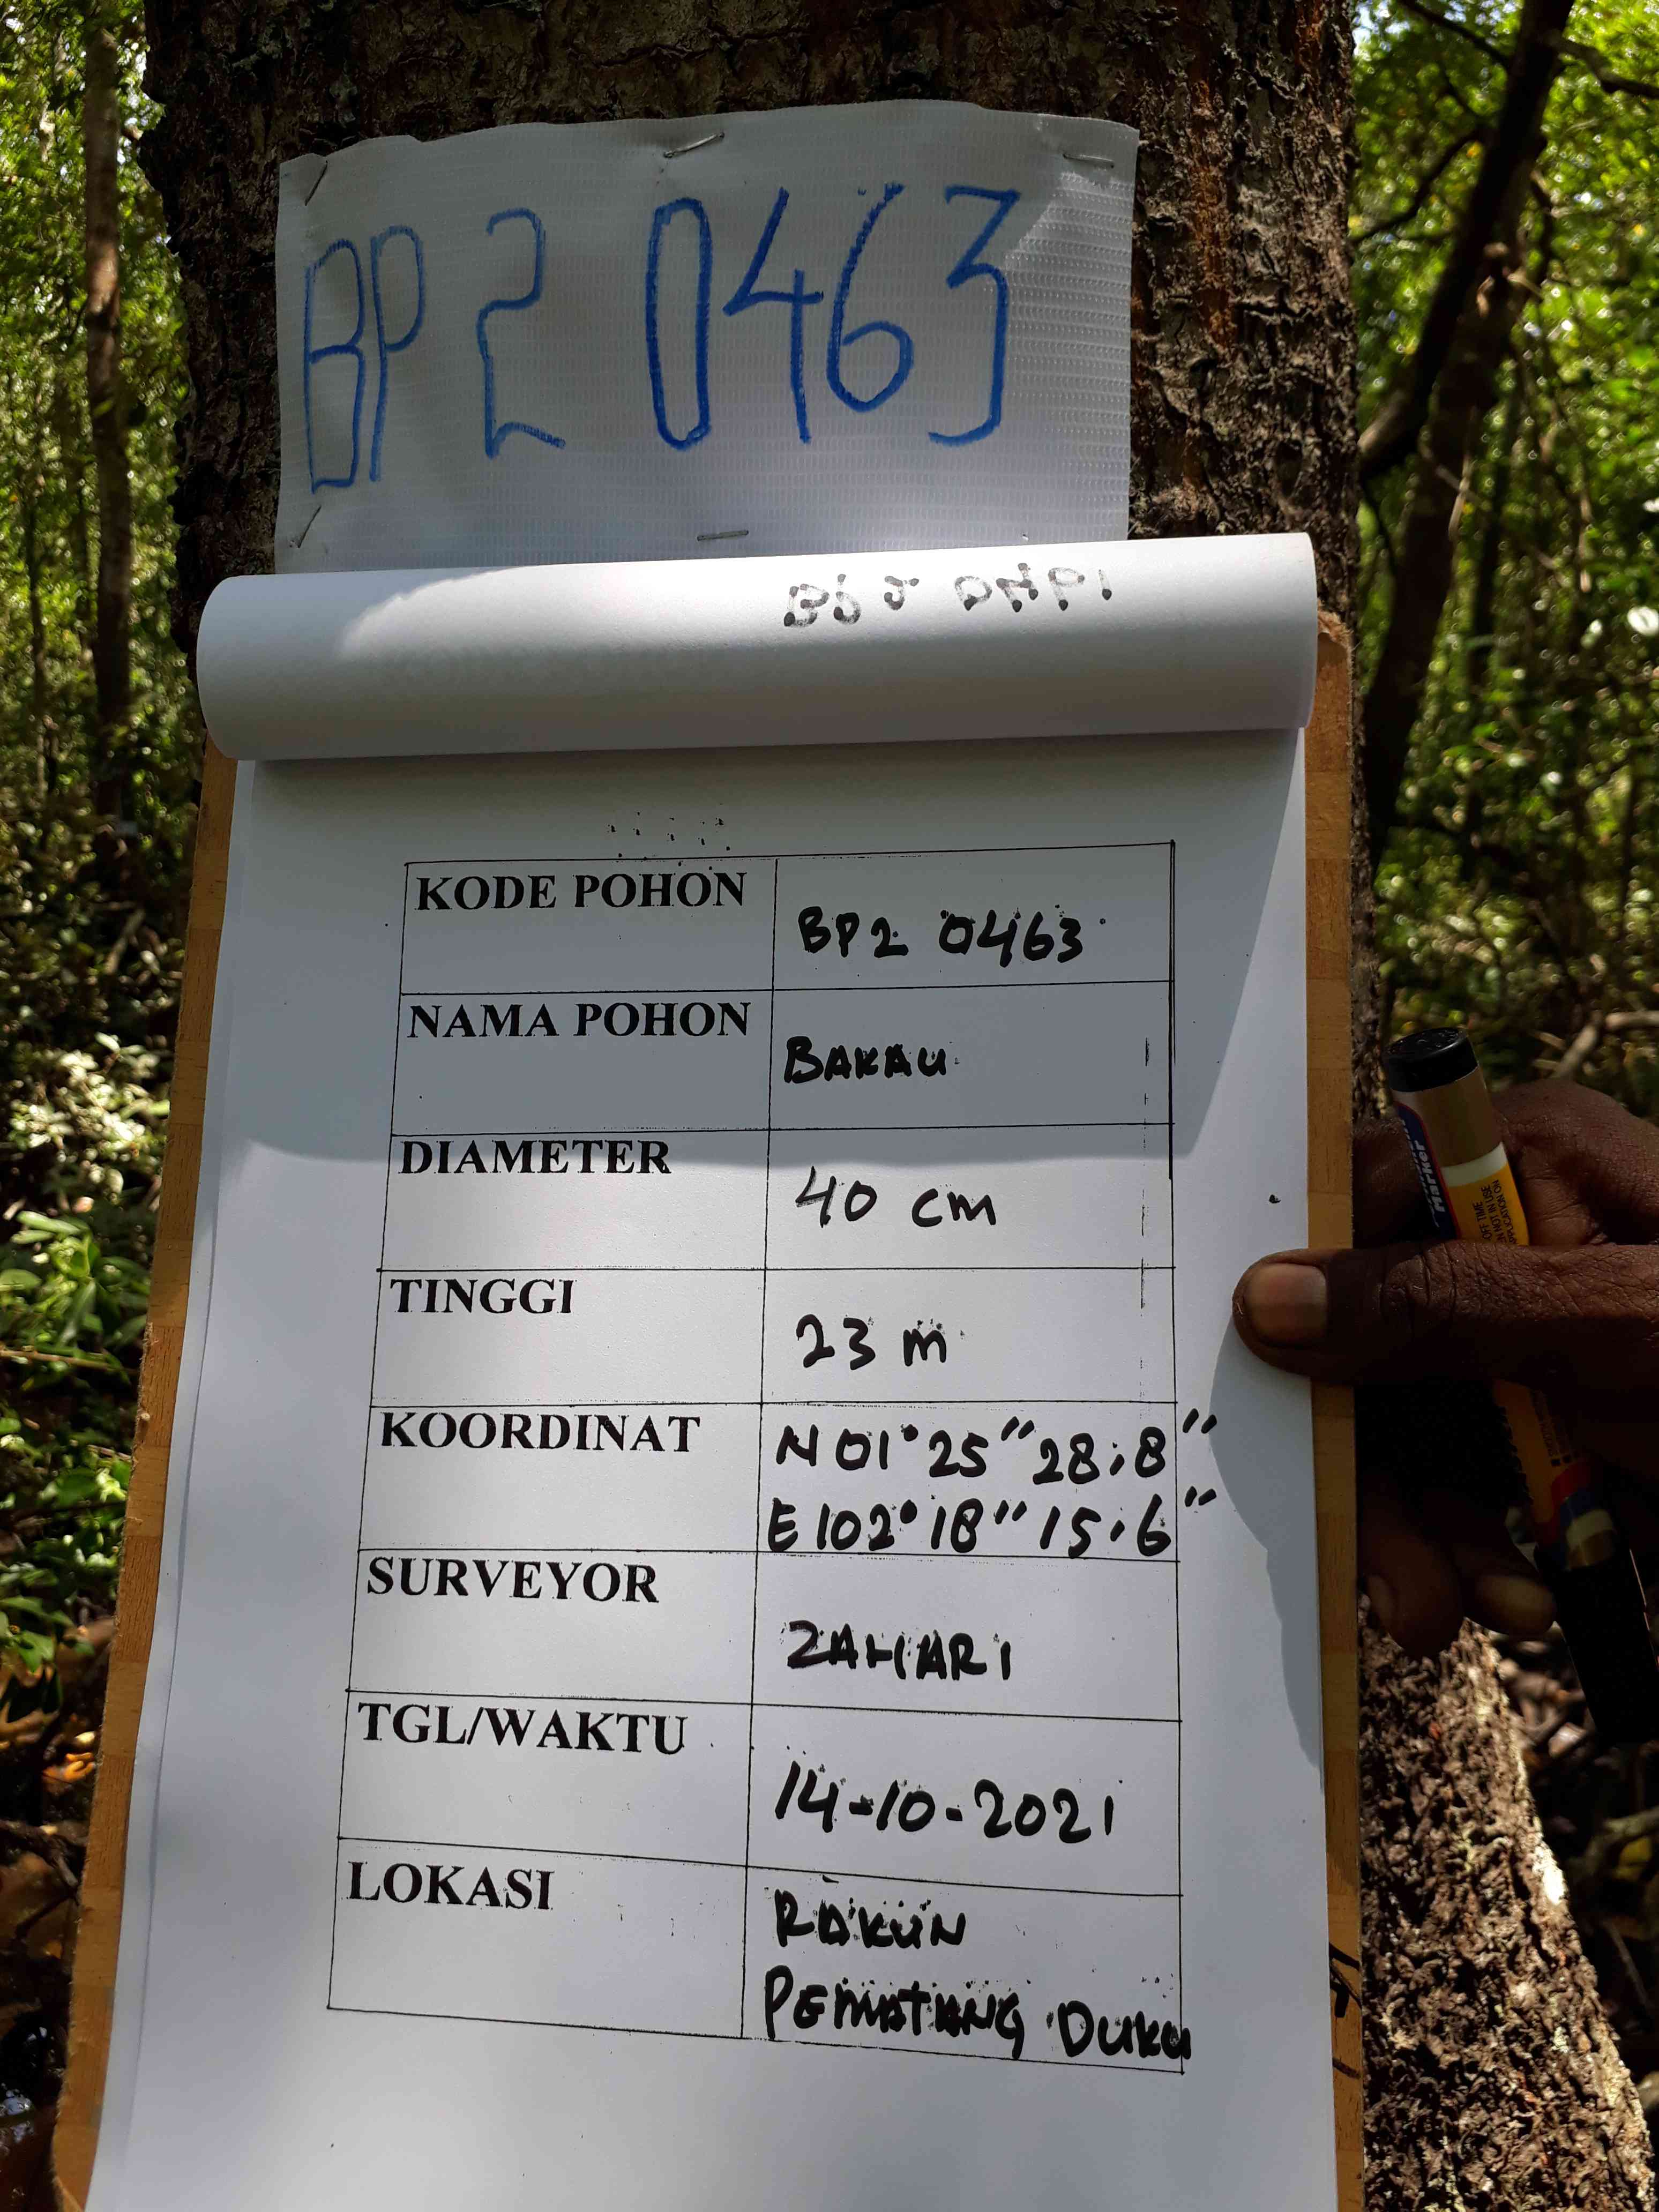 BP 2 0463
KODE POHON BP2 0463
NAMA POHON BAKAU
DIAMETER 40 cm
TINGGI 23 m
KOORDINAT N 01° 25" 28,8"
E 102° 18" 15,6"
SURVEYOR ZAHARI
TGL/WAKTU 14-10-2021
LOKASI RAKUN
PEMATANG DUKU
Marker